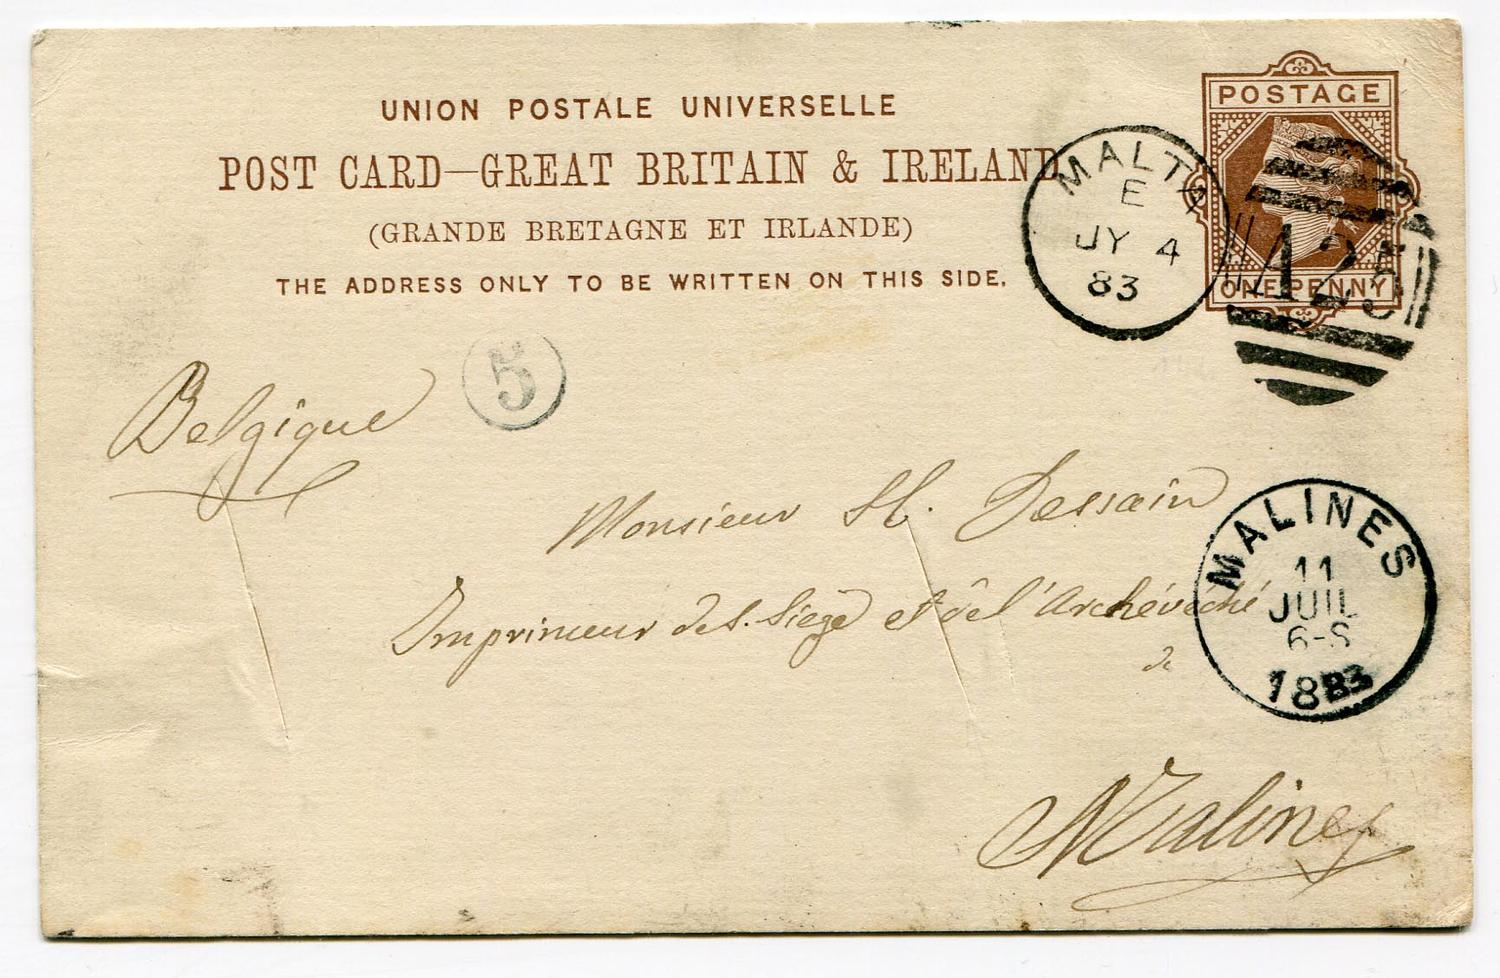 UNION POSTALE UNIVERSELLE
POST CARD—GREAT BRITAIN & IRELAND
(GRANDE BRETAGNE ET IRLANDE)
THE ADDRESS ONLY TO BE WRITTEN ON THIS SIDE.
POSTAGE
ONE PENNY
MALTA
E
JY 4
83
A25
5
Belgique
Monsieur H. Dessain
Imprimeur du S. Siège et de l'Archévêché
de
Malines
MALINES
11
JUIL
6-S
1883